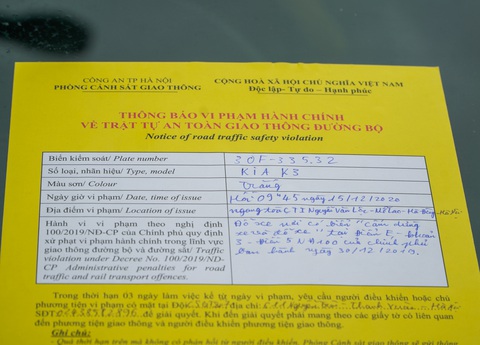 CÔNG AN TP HÀ NỘI
PHÒNG CẢNH SÁT GIAO THÔNG
CỘNG HOÀ XÃ HỘI CHỦ NGHĨA VIỆT NAM
Độc lập- Tự do – Hạnh phúc
THÔNG BÁO VI PHẠM HÀNH CHÍNH
VỀ TRẬT TỰ AN TOÀN GIAO THÔNG ĐƯỜNG BỘ
Notice of road traffic safety violation
Biển kiểm soát/ Plate number 30F-335.32
Số loại, nhãn hiệu/ Type, model KIA K3
Màu sơn/ Colour Trắng
Ngày giờ vi phạm/ Date, time of issue Hồi 09 45 ngày 15/12/2020
Địa điểm vi phạm/ Location of issue CT1 Nguyễn Văn Lộc - Mỗ Lao - Hà Đông
Hành vi vi phạm theo nghị định 100/2019/NĐ-CP của Chính phủ quy định xử phạt vi phạm hành chính trong lĩnh vực giao thông đường bộ và đường sắt/ Traffic violation under Decree No. 100/2019/ND-CP Administrative penalties for road traffic and rail transport offences.
Đỗ xe nơi có biển "cấm dừng
xe và đỗ xe" tại Điểm E - khoản
3 - Điều 5 NĐ 100 của chính phủ
ban hành ngày 30/12/2019.
Trong thời hạn 03 ngày làm việc kể từ ngày vi phạm, yêu cầu người điều khiển hoặc chủ
phương tiện vi phạm có mặt tại Đội địa chỉ: Nguyễn Thanh Xuân
SĐT: để giải quyết. Khi đến giải quyết phải mang theo các giấy tờ có liên quan
đến phương tiện giao thông và người điều khiển phương tiện giao thông.
Ghi chú:
- Quá thời hạn trên mà không có phản hồi từ người điều khiển, Phòng Cảnh sát giao thông sẽ gửi thông